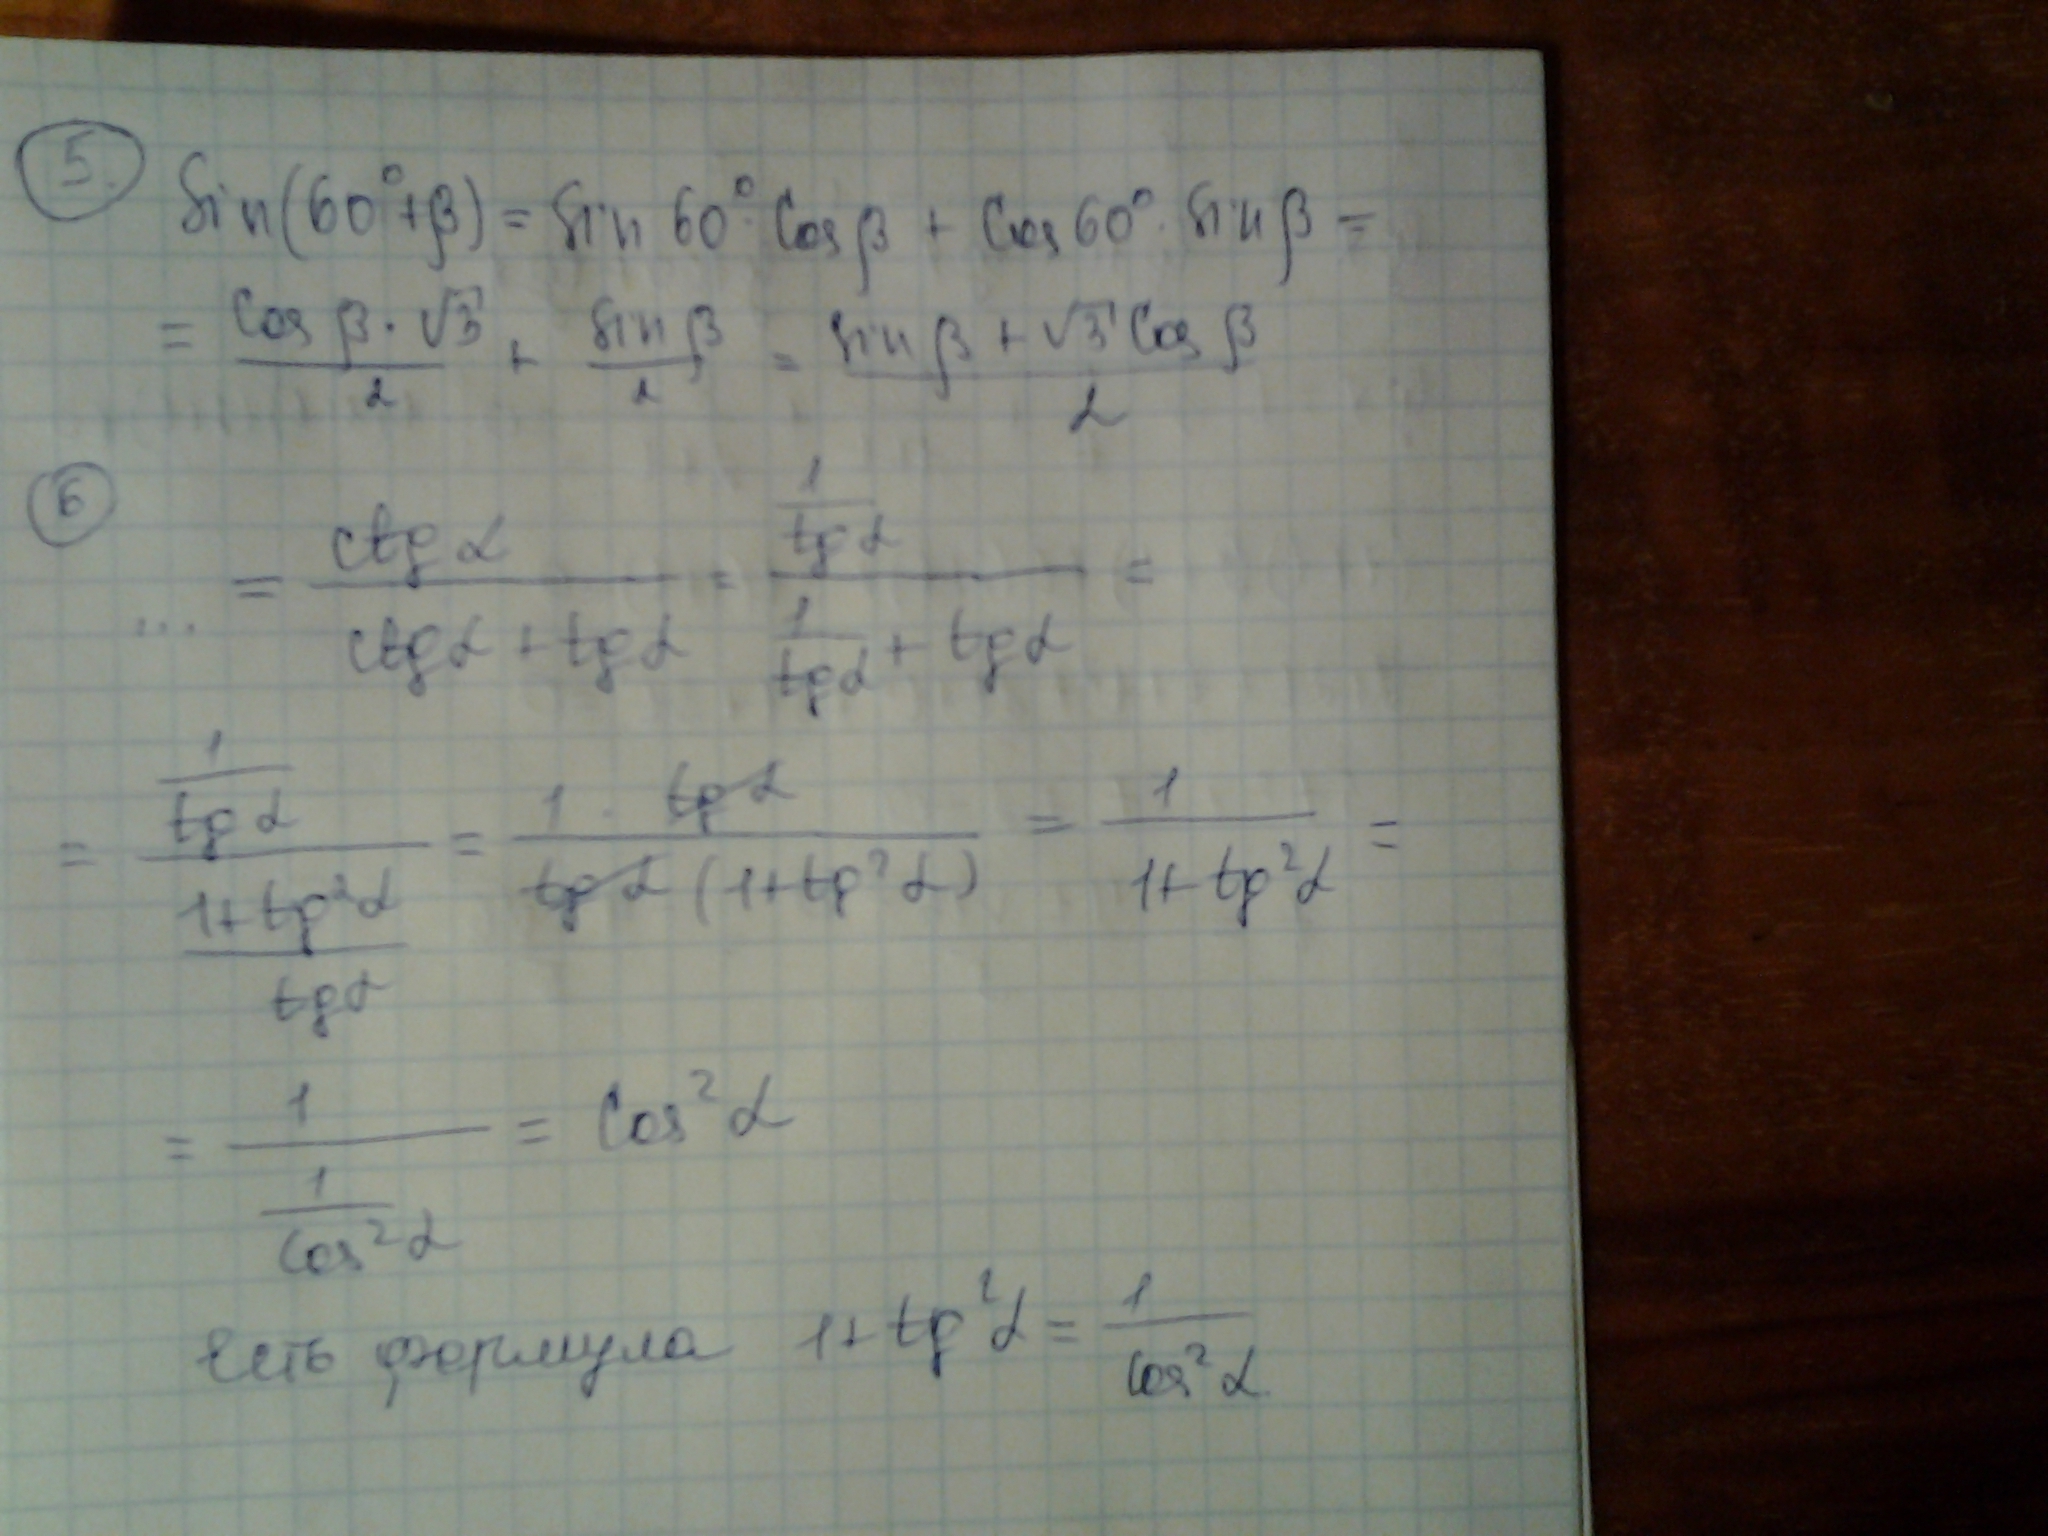 5. Sin(60°+β) = Sin 60°· Cos β + Cos 60°· Sin β =
= (Cos β · √3)/2 + (Sin β)/2 = (Sin β + √3 Cos β)/2
6 ... = (ctg α)/(ctg α + tg α) = (1/(tg α))/(1/(tg α) + tg α) =
= (1/(tg α))/((1+tg²α)/(tg α)) = (1 · tg α)/(tg α (1+tg²α)) = 1/(1+tg²α) =
= 1/(1/(Cos²α)) = Cos²α
есть формула 1+tg²α = 1/(Cos²α)